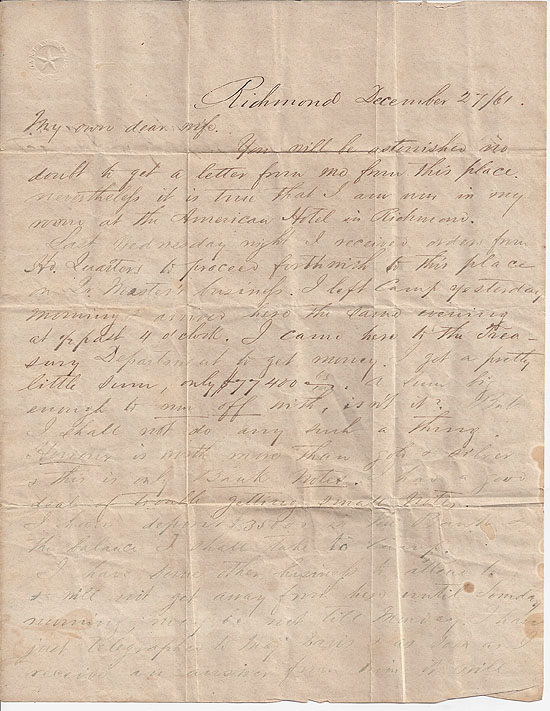 Richmond December 27/61.
My own dear wife.
You will be astonished no
doubt to get a letter from me from this place.
nevertheless it is true that I am now in my
room at the American Hotel in Richmond.
Last Wednesday night I received orders from
Hd. Quarters to proceed forthwith to this place
on Qr Master's business. I left Camp yesterday
morning & arrived here the same evening
at ½ past 4 o'clock. I came here to the Trea-
sury Department to get money. I got a pretty
little sum, only $77400. A sum big
enough to run off with, isn't it? But
I shall not do any such a thing.
Honour is worth more than gold & silver
& this is only Bank Notes. I had a good
deal of trouble getting small Notes.
I have deposit in the Bank &
the balance I shall take to Camp.
I have some other business to attend to
& will not get away from here until Sunday
morning, may be not till Monday. I have
just telegraphed to Maj as soon as I
receive an answer from him it will